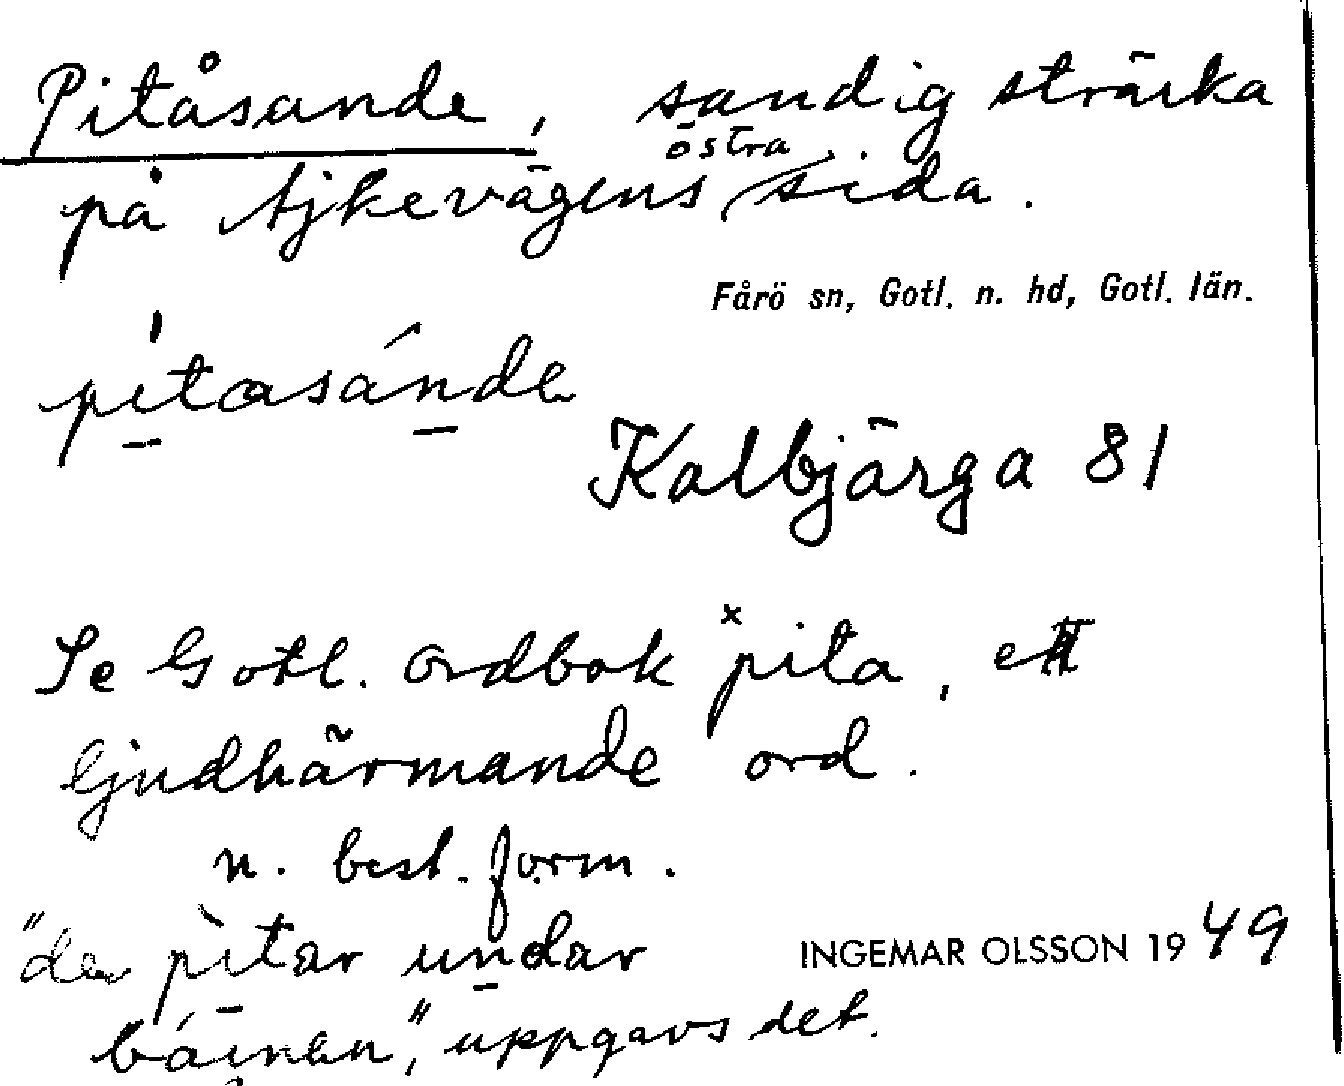 Pitåsande, sandig sträcka
på Ajkevägens östra sida.
Fårö sn, Gotl. n. hd, Gotl. län.
pi̱tasáṉde
Kalbjärga 81
Se Gotl. ordbok ˣpita, ett
ljudhärmande ord.
n. best. form.
"de pìtar undar
INGEMAR OLSSON 1949
báinen", uppgavs det.